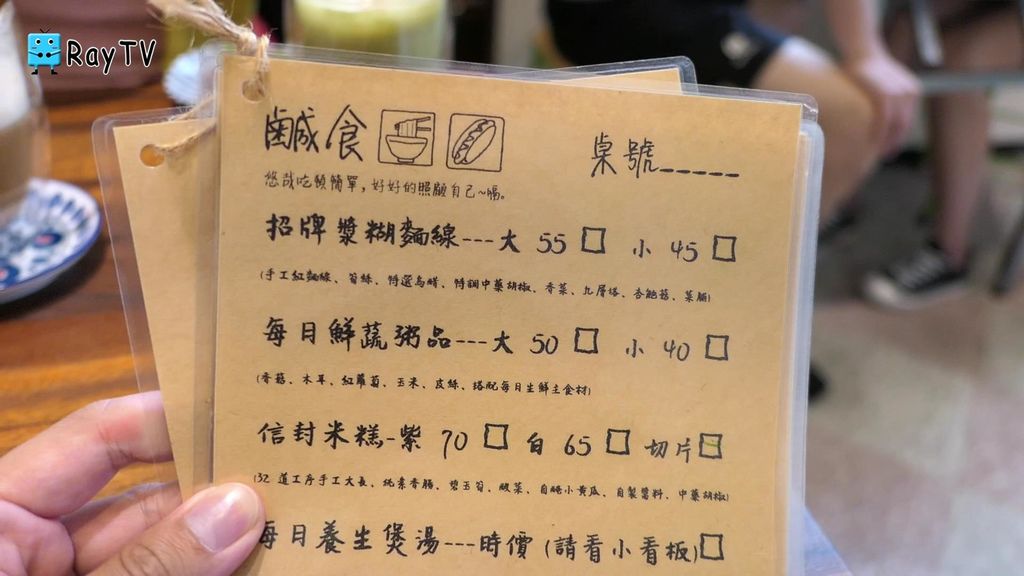 RayTV
鹹食
桌號-----
悠哉吃頓簡單，好好的照顧自己~嗝。
招牌漿糊麵線---大 55 □ 小 45 □
(手工紅麵線、筍絲、特選烏醋、特調中藥胡椒、香菜、九層塔、杏鮑菇、菜脯)
每日鮮蔬粥品---大 50 □ 小 40 □
(香菇、木耳、紅蘿蔔、玉米、皮絲、搭配每日生鮮主食材)
信封米糕-紫 70 □ 白 65 □ 切片□
(32 道工序手工大長、純素香腸、碧玉筍、酸菜、自醃小黃瓜、自製醬料、中藥胡椒)
每日養生煲湯---時價 (請看小看板)□